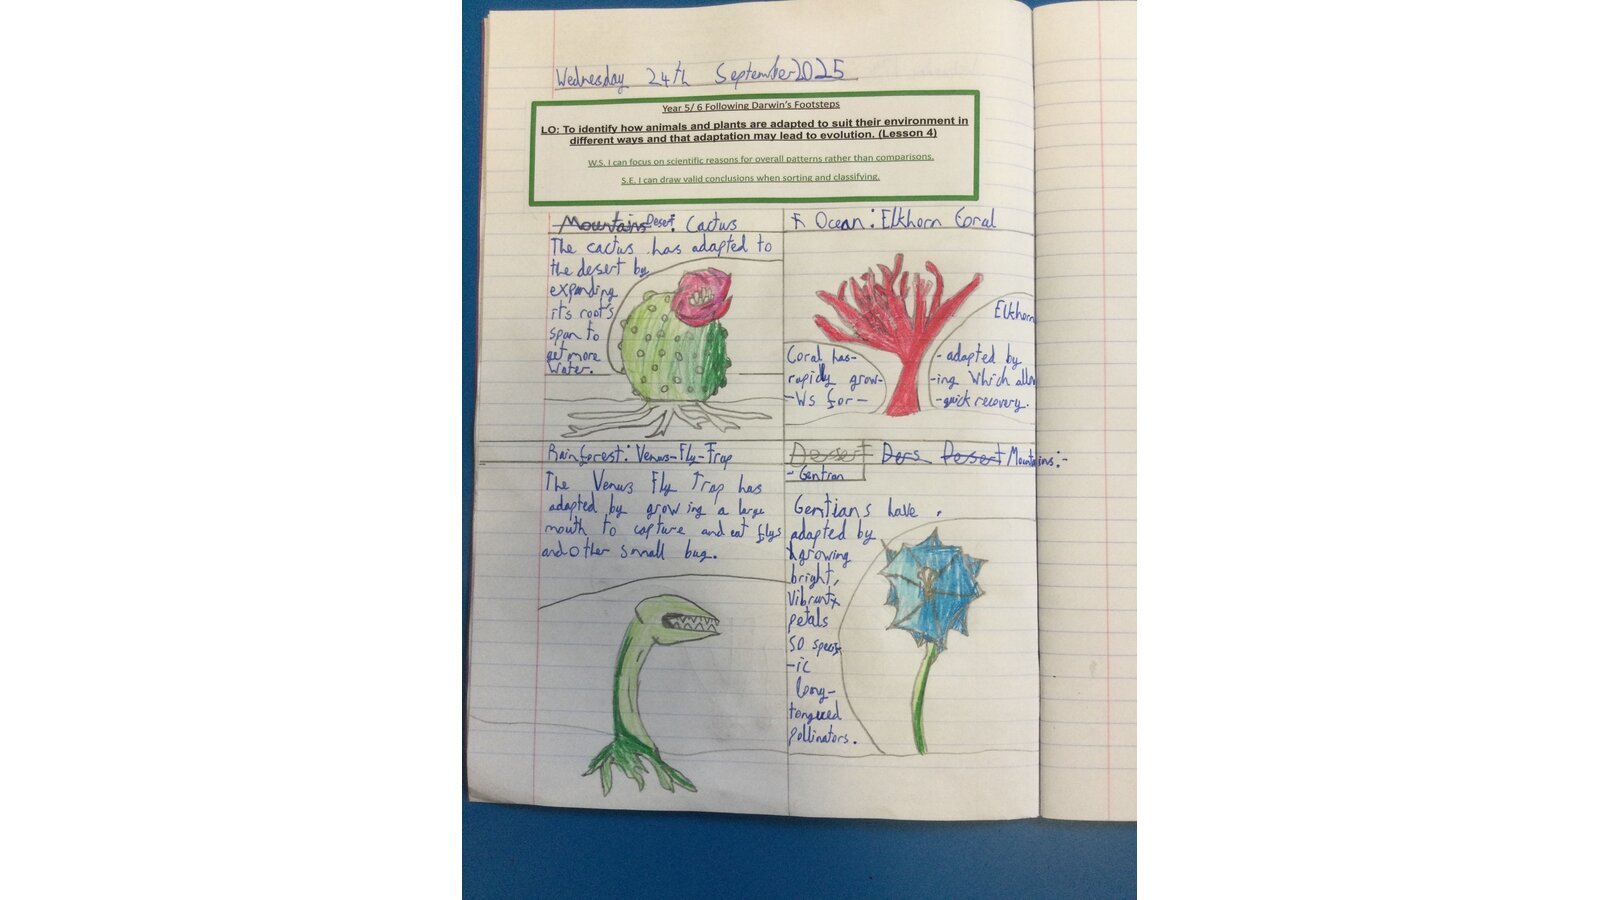 Wednesday 24th September 2025
Year 5/ 6 Following Darwin's Footsteps
LO: To identify how animals and plants are adapted to suit their environment in
different ways and that adaptation may lead to evolution. (Lesson 4)
W.S. I can focus on scientific reasons for overall patterns rather than comparisons.
S.E. I can draw valid conclusions when sorting and classifying.
Mountains Desert: Cactus
The cactus has adapted to
the desert by
expanding
its root's
span to
get more
water.
Ocean: Elkhorn Coral
Elkhorn
Coral has- - adapted by
rapidly grow- -ing which allow
-ws for- -quick recovery.
Rainforest: Venus-Fly-Trap
The Venus Fly Trap has
adapted by growing a large
mouth to capture and eat flys
and other small bug.
Dessert Ders Dessert Mountains:-
- Gentian
Gentians have
adapted by
growing
bright,
vibrant
petals
so specif
-ic
long-
tongued
pollinators.